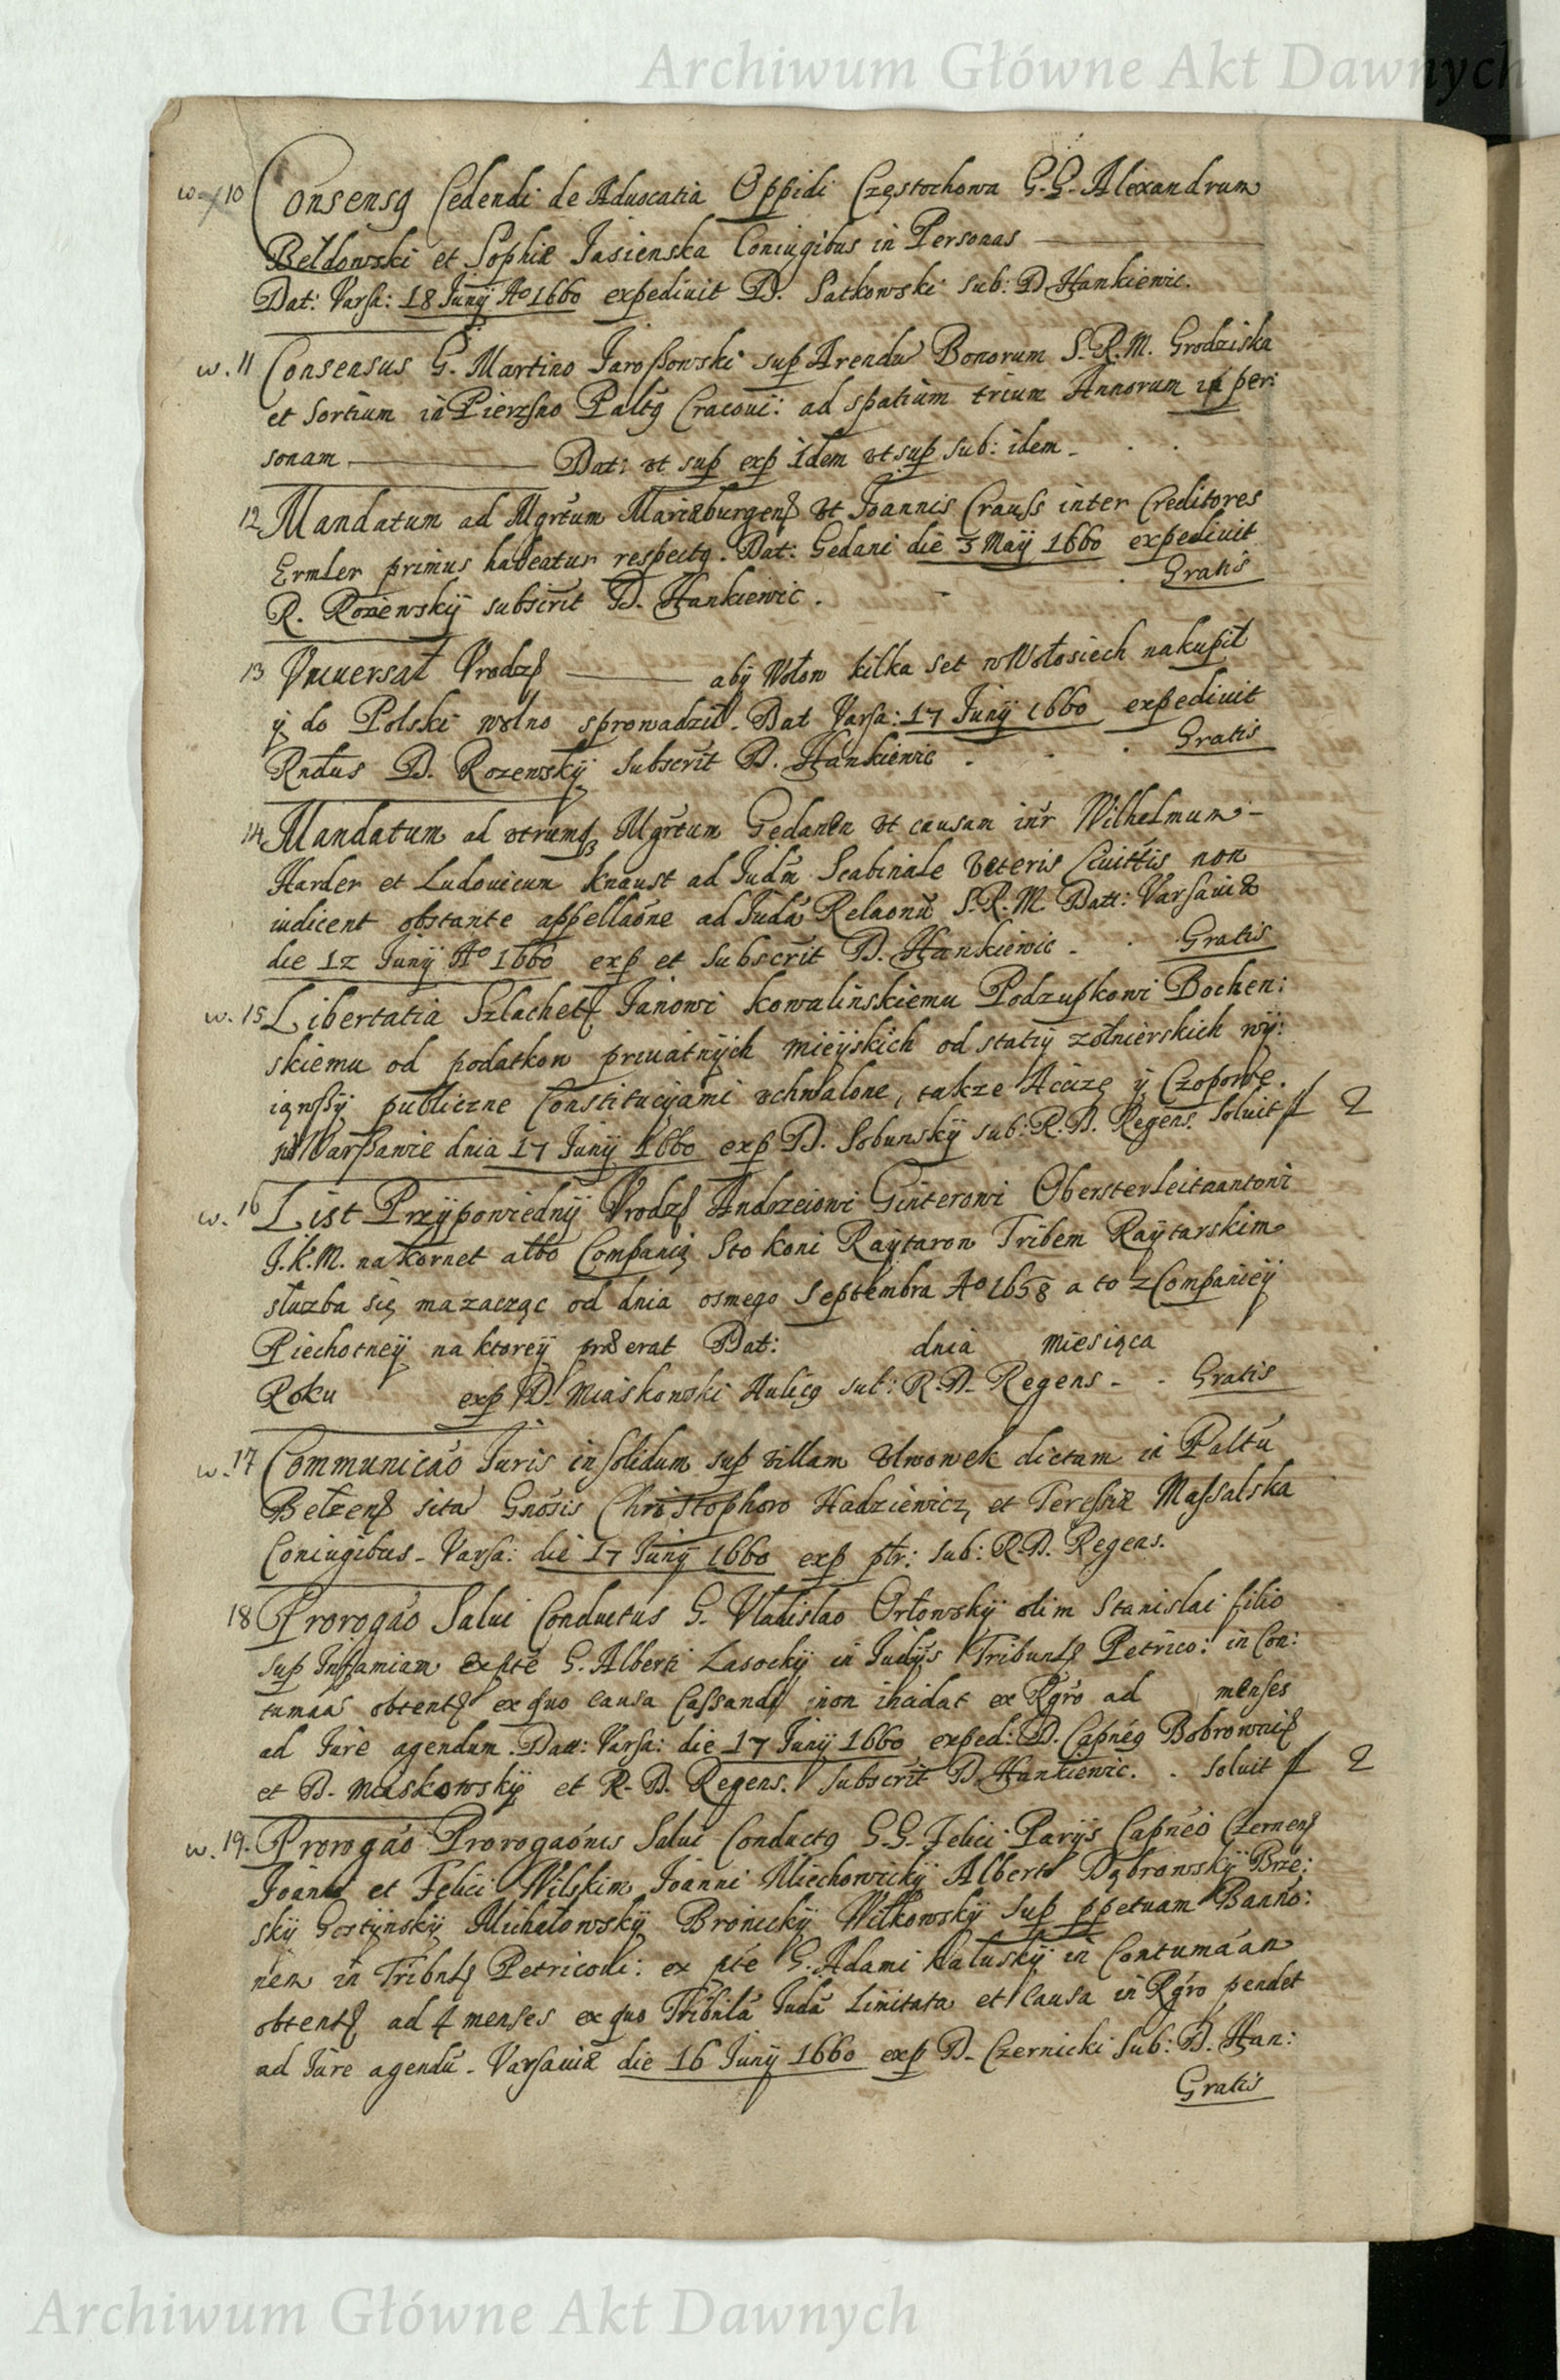 Archiwum Główne Akt Dawnych
w. 10 Consensq Cedendi de Aduocatia Oppidi Częstochowa G.G. Alexandrum
Bełdowski et Sophiæ Jasienska Coniugibus in Personas
Dat: Varsa: 18 Junÿ Aº 1660 expediuit D. Satkowski sub: D. Hankiewic.
w. 11 Consensus G. Martino Jaroszowski sup Arendā Bonorum S.R.M. Grodziska
et Sortium in Pierzno Paltq Cracoui: ad spatium trium Annorum in per:
sonam Dat: vt sup exp Idem vt sup sub: idem
12 Mandatum ad Mgrtum Mariæburgens vt Joannis Crauss inter Creditores
Ermler primus habeatur respectq. Dat: Gedani die 3 Maÿ 1660 expediuit
R. Rozewskÿ subscrit D. Hankiewic. Gratis
13 Vniuersał Vrodz abÿ Wołow kilka set w Wołosiech nakupił
ÿ do Polski wolno sprowadził. Dat Varsa: 17 Junÿ 1660 expediuit
Rndus D. Rozewskÿ Subscrit D. Hankiewic Gratis
14 Mandatum ad vtrumq Mgrtum Gedanen vt causam inr Wilhelmum
Harder et Ludouicum Knaust ad Judm Scabinale Veteris Ciuittis non
iudicent obstante appellaone ad Juda Relaonu S.R.M. Datt: Varsauiæ
die 12 Junÿ Aº 1660 exp et Subscrit D. Hankiewic Gratis
w. 15 Libertatia Szlachet Janowi Kowalinskiemu Podzupkowi Bochen:
skiemu od podatkow priuatnÿch mieÿskich od statiÿ zołnierskich wÿ:
iąwszÿ publiczne Constitucÿami vchwalone, takze Acizę ÿ Czopowe.
w Warszawie dnia 17 Junÿ 1660 exp D. Sobunskÿ sub: R.D. Regens. Soluit f 2
w. 16 List Przÿpowiednÿ Vrodz Andrzeiowi Ginterowi Obersterleitnantowi
J.K.M. na Kornet albo Companią Sto koni Raÿtarow Tribem Raÿtarskim
słuzba się ma zacząc od dnia osmego Septembra Aº 1658 a to z Companieÿ
Piechotneÿ na ktoreÿ præerat Dat: dnia miesiąca
Roku exp D. Miaskowski Aulicq sub: R.D. Regens Gratis
w. 17 Communicao Juris in solidum sup villam Vlwowek dictam in Paltu
Bełzens sitā Gnosis Christophoro Hadziewicz et Teresiæ Massalska
Coniugibus. Varsa: die 17 Junÿ 1660 exp ptr: sub: R.D. Regens.
18 Prorogao Salui Conductus G. Vladislao Orłowskÿ olim Stanislai filio
sup Infamiam ex pte G. Alberti Lasockÿ in Judÿs Tribunls Petrico: in Con:
tumaa obtent ex quo causa Cassandi non incidat ex Rgro ad menses
ad Jure agendum. Datt: Varsa: die 17 Junÿ 1660 exped: D. Capneq Bobrownic
et D. Miaskowskÿ et R.D. Regens. Subscrit D. Hankiewic. Soluit f 2
w. 19. Prorogao Prorogaonis Salui Conductq G.G. Felici Parÿs Capneo Czernen
Joanni et Felici Wilskim Joanni Miechowickÿ Alberto Dąbrowskÿ Brze:
skÿ Gostÿnskÿ Michałowskÿ Bronickÿ Witkowskÿ sup ppetuam Banno:
nem in Tribnls Petricoui: ex pte G. Adami Kałuskÿ in Contumaan
obtent ad 4 menses ex quo Tribnla Juda Limitata et Causa in Rgro pendet
ad Jure agendu. Varsauiæ die 16 Junÿ 1660 exp D. Czernicki Sub: D. Han:
Gratis
Archiwum Główne Akt Dawnych